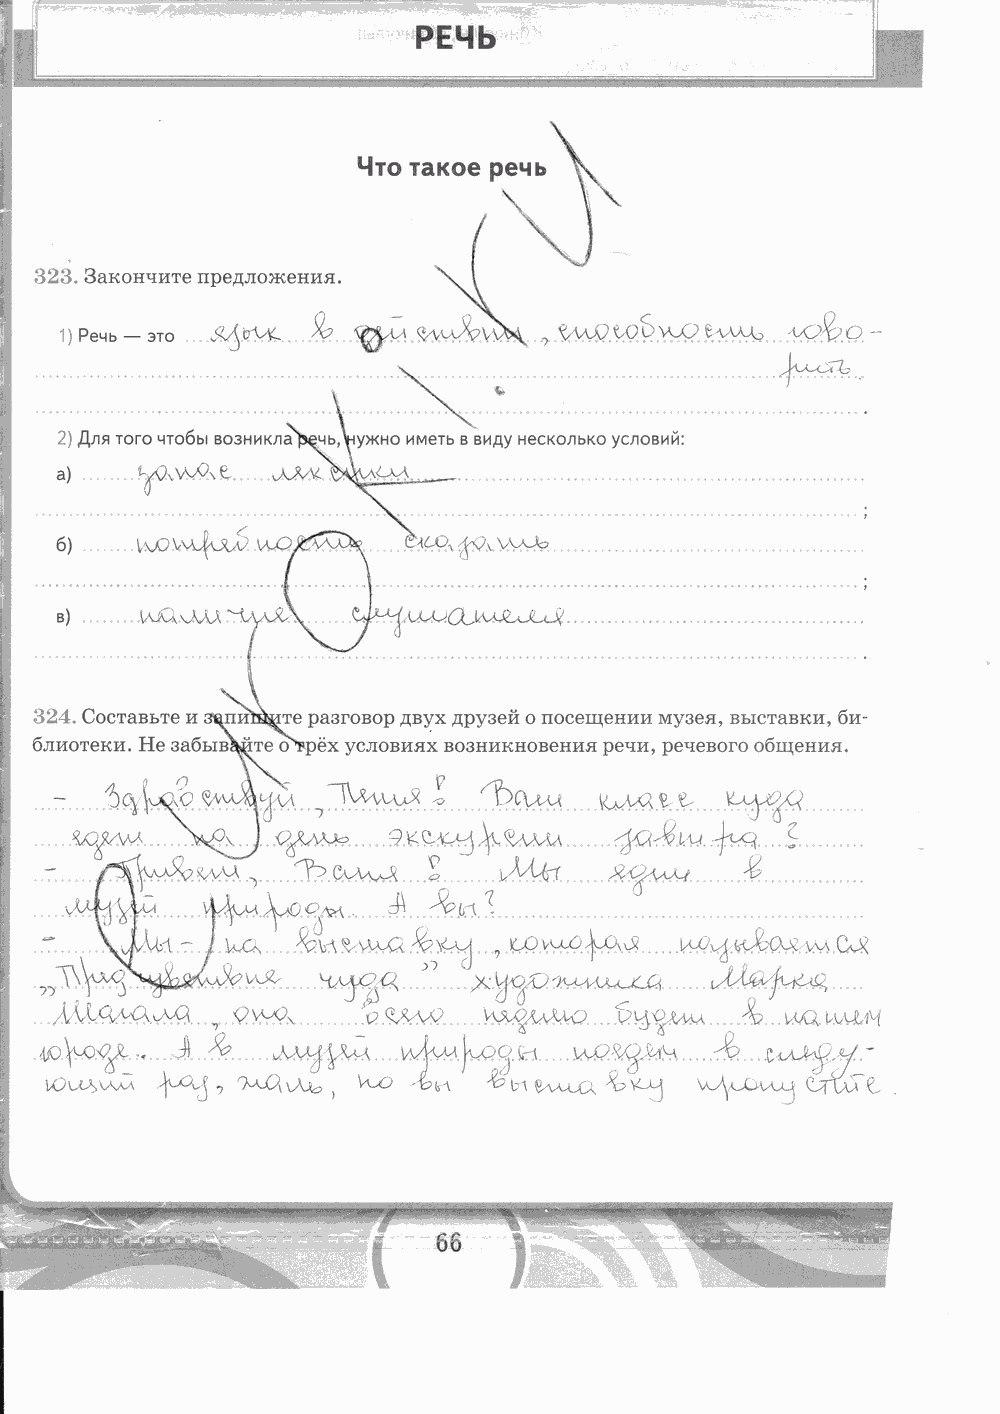 РЕЧЬ
Что такое речь
323. Закончите предложения.
1) Речь — это язык в действии, способность гово-
рить.
2) Для того чтобы возникла речь, нужно иметь в виду несколько условий:
а) запас лексики
;
б) потребность сказать
;
в) наличие слушателя
.
324. Составьте и запишите разговор двух друзей о посещении музея, выставки, би-
блиотеки. Не забывайте о трёх условиях возникновения речи, речевого общения.
- Здравствуй, Петя! Ваш класс куда
едет на день экскурсии завтра?
- Привет, Ваня! Мы едим в
музей природы. А вы?
- Мы - на выставку, которая называется
„Предчувствие чуда” художника Марка
Шагала, она всего неделю будет в нашем
городе. А в музей природы поедем в следу-
ющий раз, жаль, но вы выставку пропустите.
66
urokI.ru